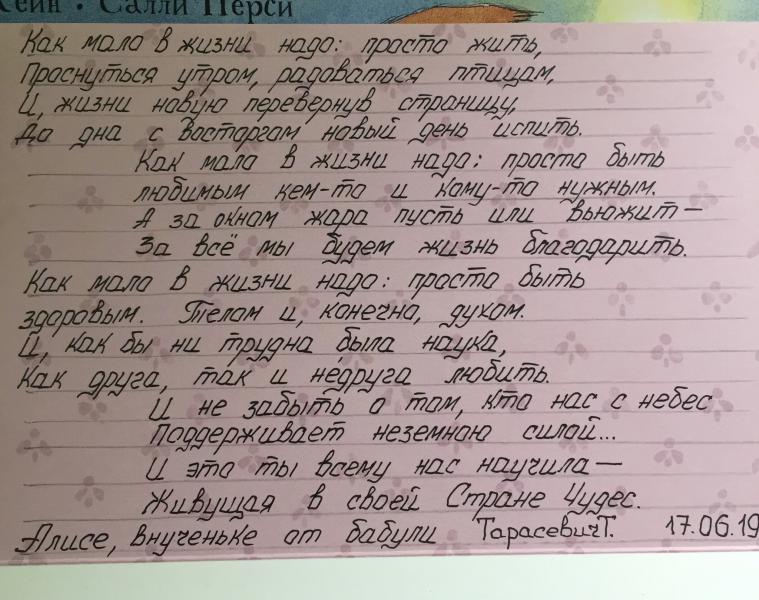 Кейн • Салли Перси
Как мало в жизни надо: просто жить,
Проснуться утром, радоваться птицам,
И, жизни новую перевернув страницу,
До дна с восторгом новый день испить.
Как мало в жизни надо: просто быть
любимым кем-то и кому-то нужным.
А за окном жара пусть или вьюжит —
За всё мы будем жизнь благодарить.
Как мало в жизни надо: просто быть
здоровым. Телом и, конечно, духом.
И, как бы ни трудна была наука,
Как друга, так и не́друга любить.
И не забыть о том, кто нас с небес
Поддерживает неземною силой...
И это ты всему нас научила —
Живущая в своей Стране Чудес.
Алисе, внученьке от бабули Тарасевич Т. 17.06.19